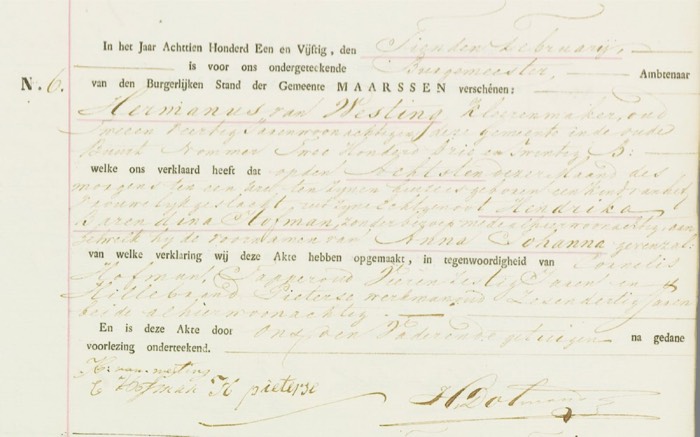 In het Jaar Achttien Honderd Een en Vijftig, den Tienden Februarij,
is voor ons ondergeteekende Burgemeester, Ambtenaar
N. 6. van den Burgerlijken Stand der Gemeente MAARSSEN verschénen:
Hermanus van Westing, Kleermaker, oud
Twee en Veertig Jaren woonachtig in deze gemeente in de oude
Buurt Nommer Twee Honderd Drie en Twintig B:
welke ons verklaard heeft dat op den Achtsten dezer Maand des
morgens ten een ure ten zijnen huize is geboren een kind van het
Vrouwelijk geslacht, uit zijne Echtgenoot Hendrika
Barendina Hofman, zonder beroep mede alhier woonachtig, aan
hetwelk hij de voornamen van Anna Johanna geven zal.
van welke verklaring wij deze Akte hebben opgemaakt, in tegenwoordigheid van Cornelis
Hofman, oud Vier en Zestig Jaren en
Hillebrand Pieterse werkman oud Zes en dertig Jaren
beide alhier woonachtig.
En is deze Akte door Ons, den Vader en de getuigen na gedane
voorlezing onderteekend.
H: van westing
C Hofman H pieterse
H. Dolmans